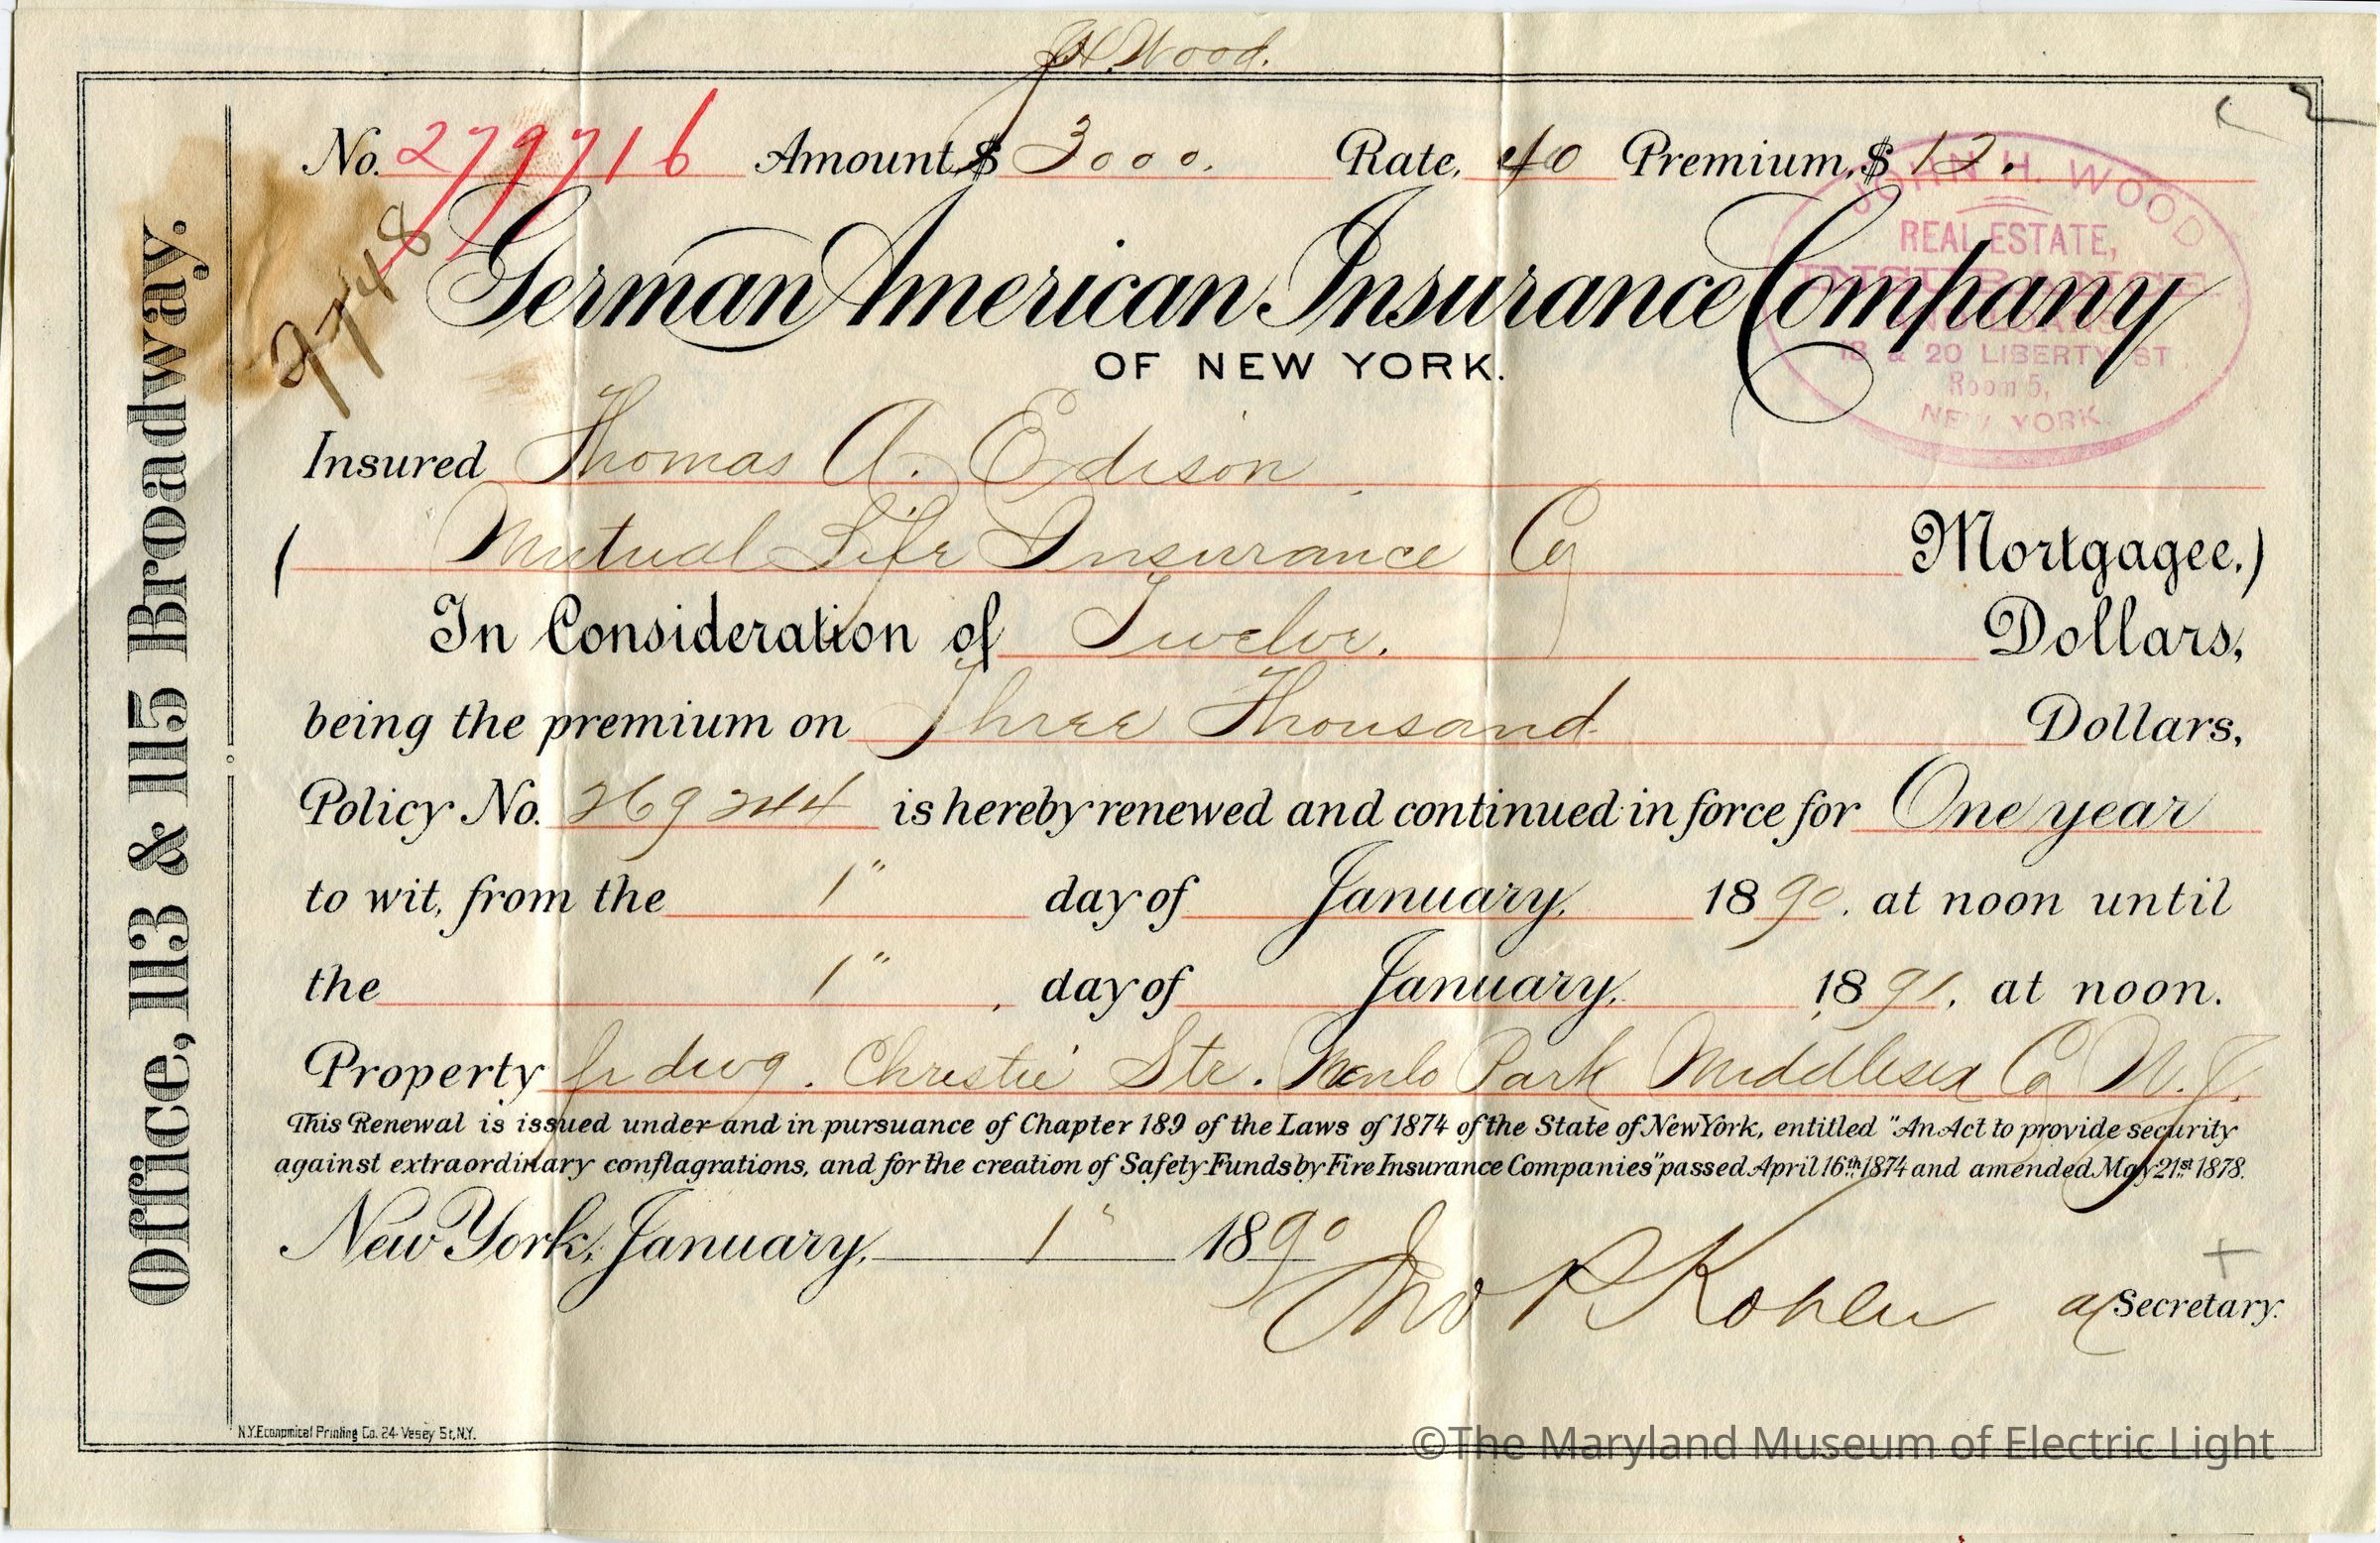 J.H. Wood.
No. 279716 Amount, $ 3000. Rate, 40 Premium, $ 12.
JOHN H. WOOD
REAL ESTATE,
INSURANCE
18 & 20 LIBERTY ST
Room 5,
NEW YORK.
9748
German American Insurance Company
OF NEW YORK.
Office, 113 & 115 Broadway.
Insured Thomas A. Edison
( Mutual Life Insurance Co Mortgagee,)
In Consideration of Twelve. Dollars,
being the premium on Three Thousand Dollars,
Policy No. 269244 is hereby renewed and continued in force for One year
to wit, from the 1" day of January, 1890, at noon until
the 1", day of January, 1891, at noon.
Property fr dwg. Christie Str. Menlo Park Middlesex Co N.J.
This Renewal is issued under and in pursuance of Chapter 189 of the Laws of 1874 of the State of New York, entitled "An Act to provide security
against extraordinary conflagrations, and for the creation of Safety Funds by Fire Insurance Companies" passed April 16th 1874 and amended May 21st 1878.
New York, January, 1" 1890
Secretary.
N.Y. Economical Printing Co. 24 Vesey St, N.Y.
©The Maryland Museum of Electric Light